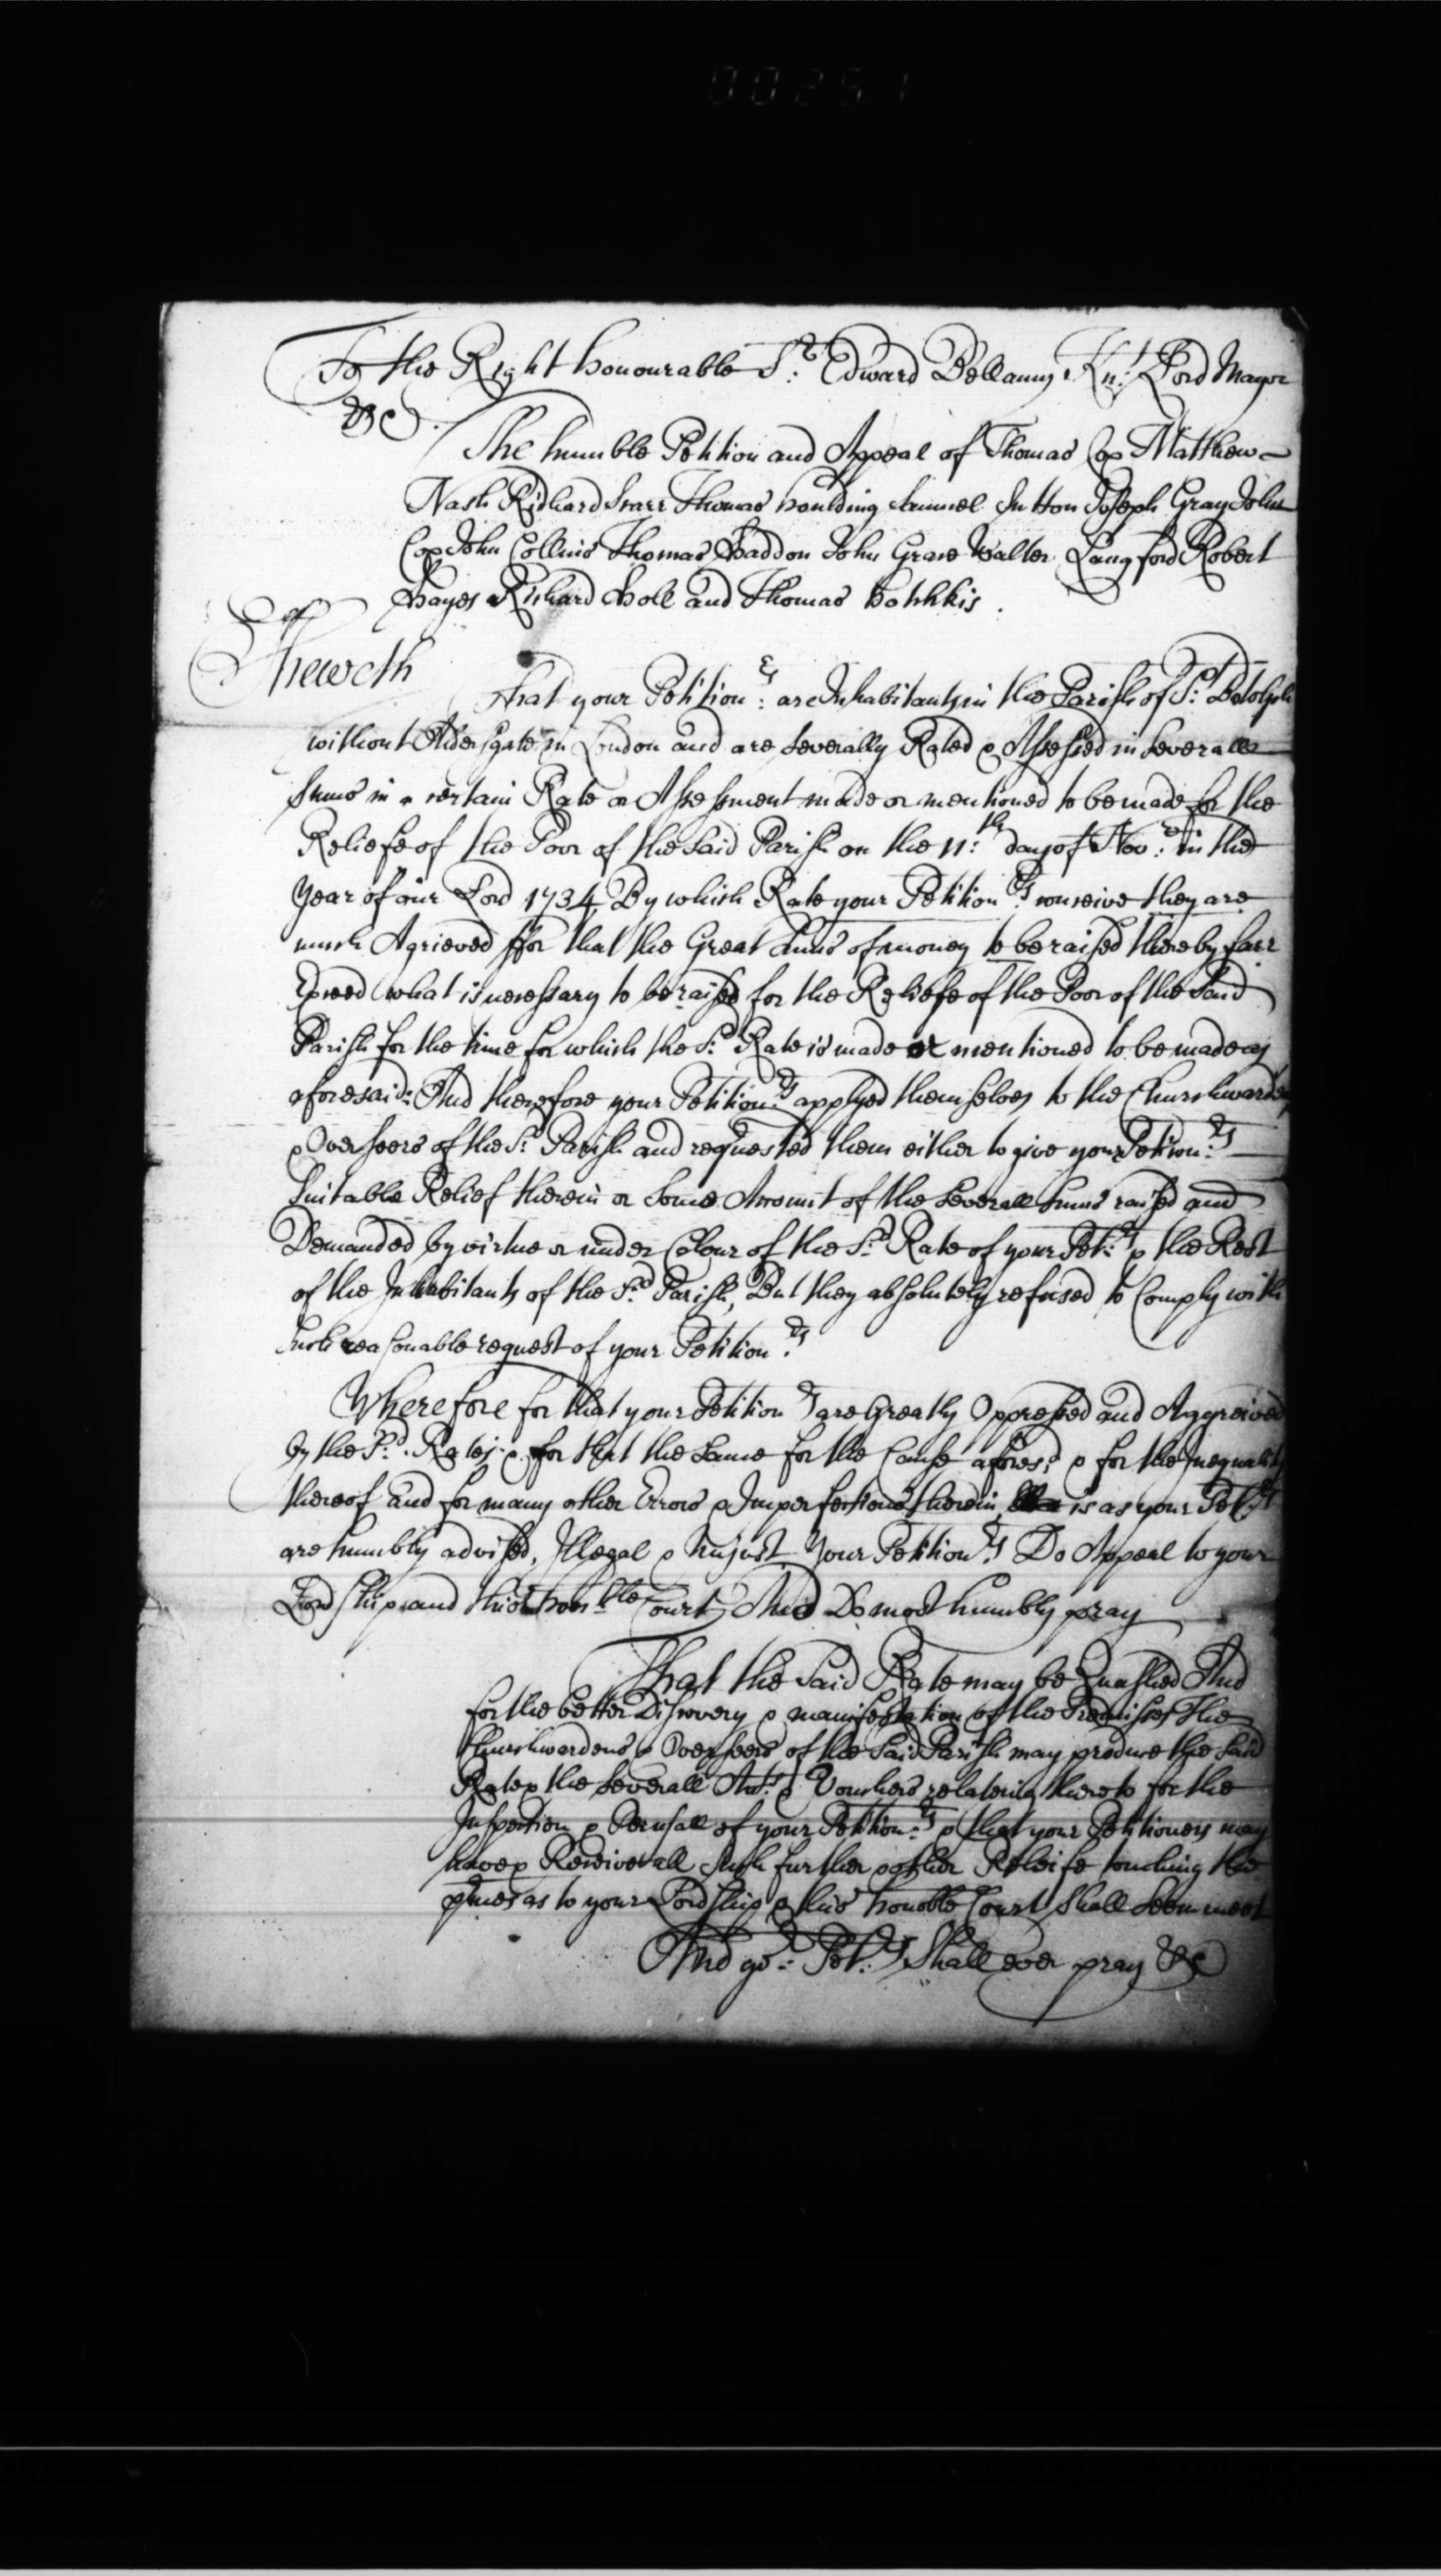 00251
To the Right honourable Sr. Edward Bellamy Knt. Lord Mayor
&c.
The humble Petition and Appeal of Thomas Cox Matthew
Nash Richard Snarr Thomas houlding Samuel Sutton Joseph Gray John
Cox John Collins Thomas Haddon John Grave Walter Langford Robert
Hayes Richard Holl and Thomas hotchkis.
Sheweth
That your Petitionrs. are Inhabitants in the Parish of St. Botolph
without Aldersgate in London and are Severally Rated & Assessed in Severall
Sums in a certain Rate or Assessment made or mentioned to be made for the
Reliefe of the Poor of the Said Parish on the 11th. day of Novr. in the
Year of our Lord 1734 By which Rate your Petitionrs. conceive they are
much Agrieved ffor that the Great Sums of money to be raised thereby farr
Exceed what is necessary to be raised for the Reliefe of the Poor of the Said
Parish for the time for which the sd. Rate is made or mentioned to be made as
aforesaid: And therefore your Petitionrs. applyed themselves to the Churchwardens
& Overseers of the sd. Parish and requested them either to give your Petitionrs.
Suitable Relief therein or Some Account of the Severall Sums raised and
Demanded by virtue or under Colour of the sd. Rate of your Petrs. & the Rest
of the Inhabitants of the sd. Parish, But they absolutely refused to Comply with
Such reasonable request of your Petitionrs.
Wherefore for that your Petitionrs are Greatly Oppressed and Aggreived
by the sd. Rates & for that the Same for the Cause aforesd. & for the Inequality
thereof and for many other Errors & Imperfections therein is as your Petrs
are humbly advised, Illegal & Unjust Your Petitionrs. Do Appeal to your
Lordship and this honble Court And Do most humbly pray
That the Said Rate may be Quashed And
for the better Discovery & manifestation of the Premisses The
Churchwardens & Overseers of the Said Parish may produce the Said
Rate & the Severall Accts. & Vouchers relateing thereto for the
Inspection & Perusall of your Petitionrs. & that your Petitioners may
have & Receive all Such further & other Releife touching the
pmes as to your Lordship & this honoble Court Shall Seem meet
And yor. Petrs. Shall ever pray &c